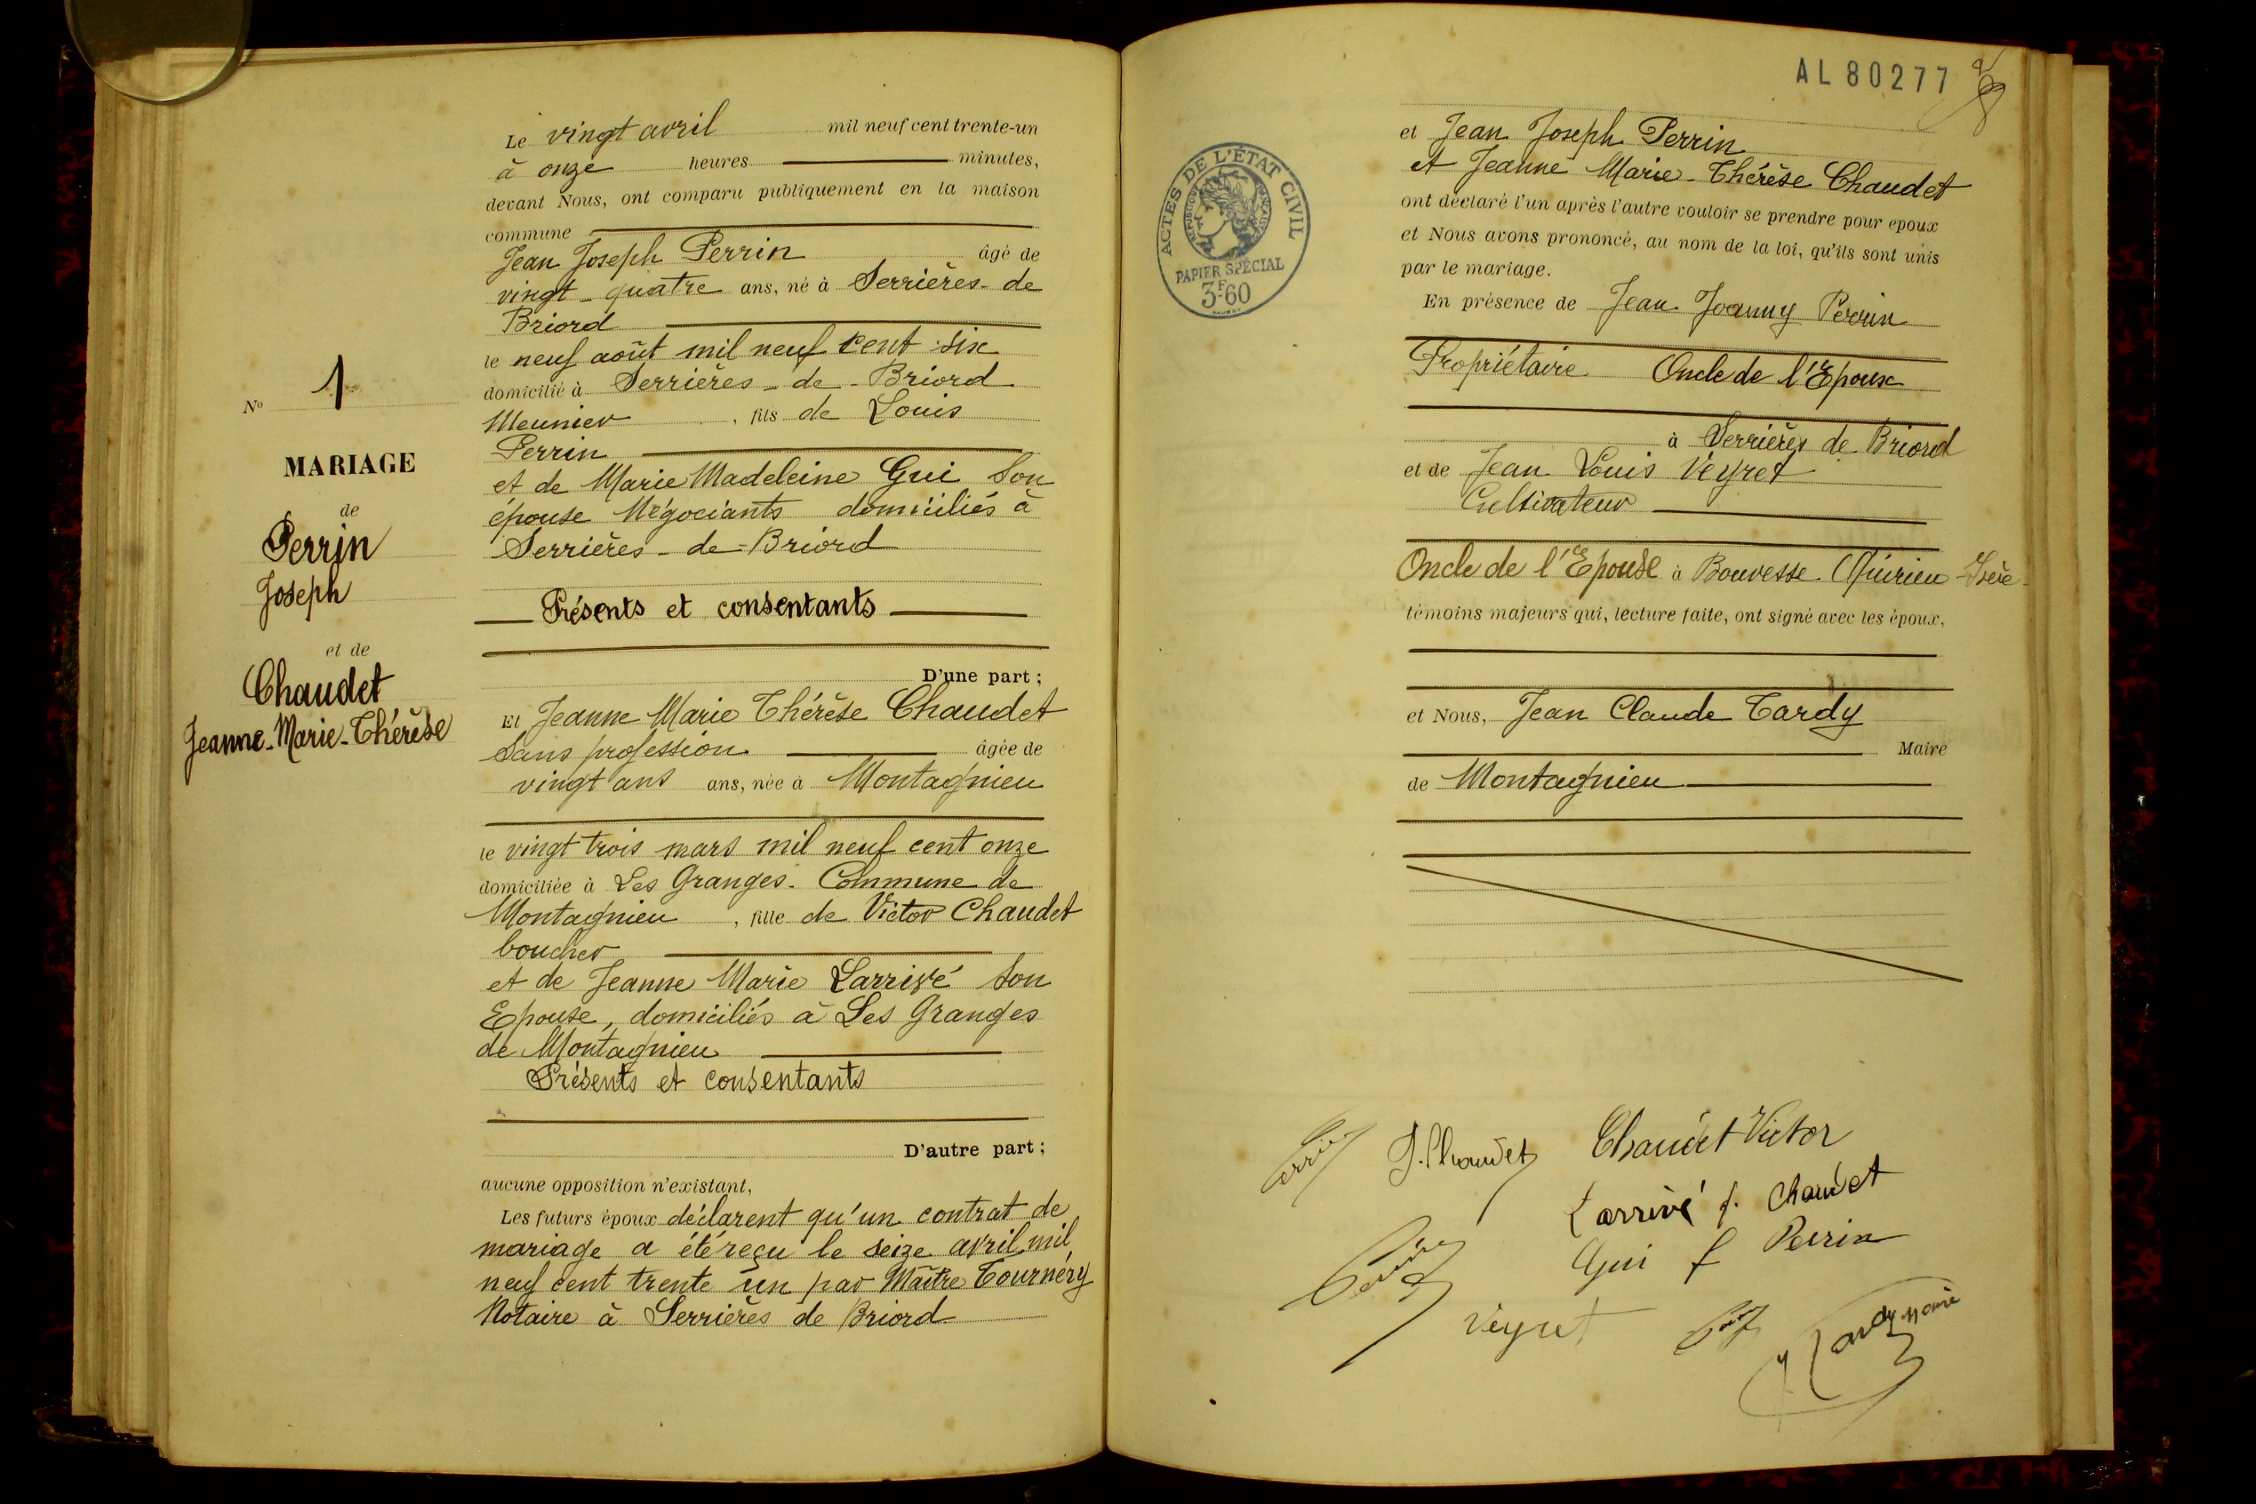 N° 1
MARIAGE
de
Perrin
Joseph
et de
Chaudet
Jeanne-Marie-Thérèse
Le vingt avril mil neuf cent trente-un
à onze heures minutes,
devant Nous, ont comparu publiquement en la maison
commune
Jean Joseph Perrin âgé de
vingt-quatre ans, né à Serrières-de
Briord
le neuf août mil neuf cent six
domicilié à Serrières-de-Briord
Meunier, fils de Louis
Perrin
et de Marie Madeleine Gui son
épouse Négociants domiciliés à
Serrières-de-Briord
Présents et consentants
D'une part;
Et Jeanne Marie Thérèse Chaudet
sans profession âgée de
vingt ans ans, née à Montagnieu
le vingt trois mars mil neuf cent onze
domiciliée à Les Granges. Commune de
Montagnieu, fille de Victor Chaudet
boucher
et de Jeanne Marie Larrivé son
Epouse, domiciliés à Les Granges
de Montagnieu
Présents et consentants
D'autre part;
aucune opposition n'existant,
Les futurs époux déclarent qu'un contrat de
mariage a été reçu le seize avril mil
neuf cent trente un par Maître Tournéry
Notaire à Serrières de Briord
AL 80277
ACTES DE L'ÉTAT CIVIL
RÉPUBLIQUE FRANÇAISE
PAPIER SPÉCIAL
3F60
et Jean Joseph Perrin
et Jeanne Marie-Thérèse Chaudet
ont déclaré l'un après l'autre vouloir se prendre pour époux
et Nous avons prononcé, au nom de la loi, qu'ils sont unis
par le mariage.
En présence de Jean Joanny Perrin
Propriétaire Oncle de l'Epoux
à Serrières de Briord
et de Jean Louis Veyret
Cultivateur
Oncle de l'Epouse à Bouvesse-Quirieu Isère
témoins majeurs qui, lecture faite, ont signé avec les époux,
et Nous, Jean Claude Tardy
Maire
de Montagnieu
Perrin J. Chaudet Chaudet Victor
Larrivé f. Chaudet
Perrin Gui f Perrin
Veyret Tardy maire